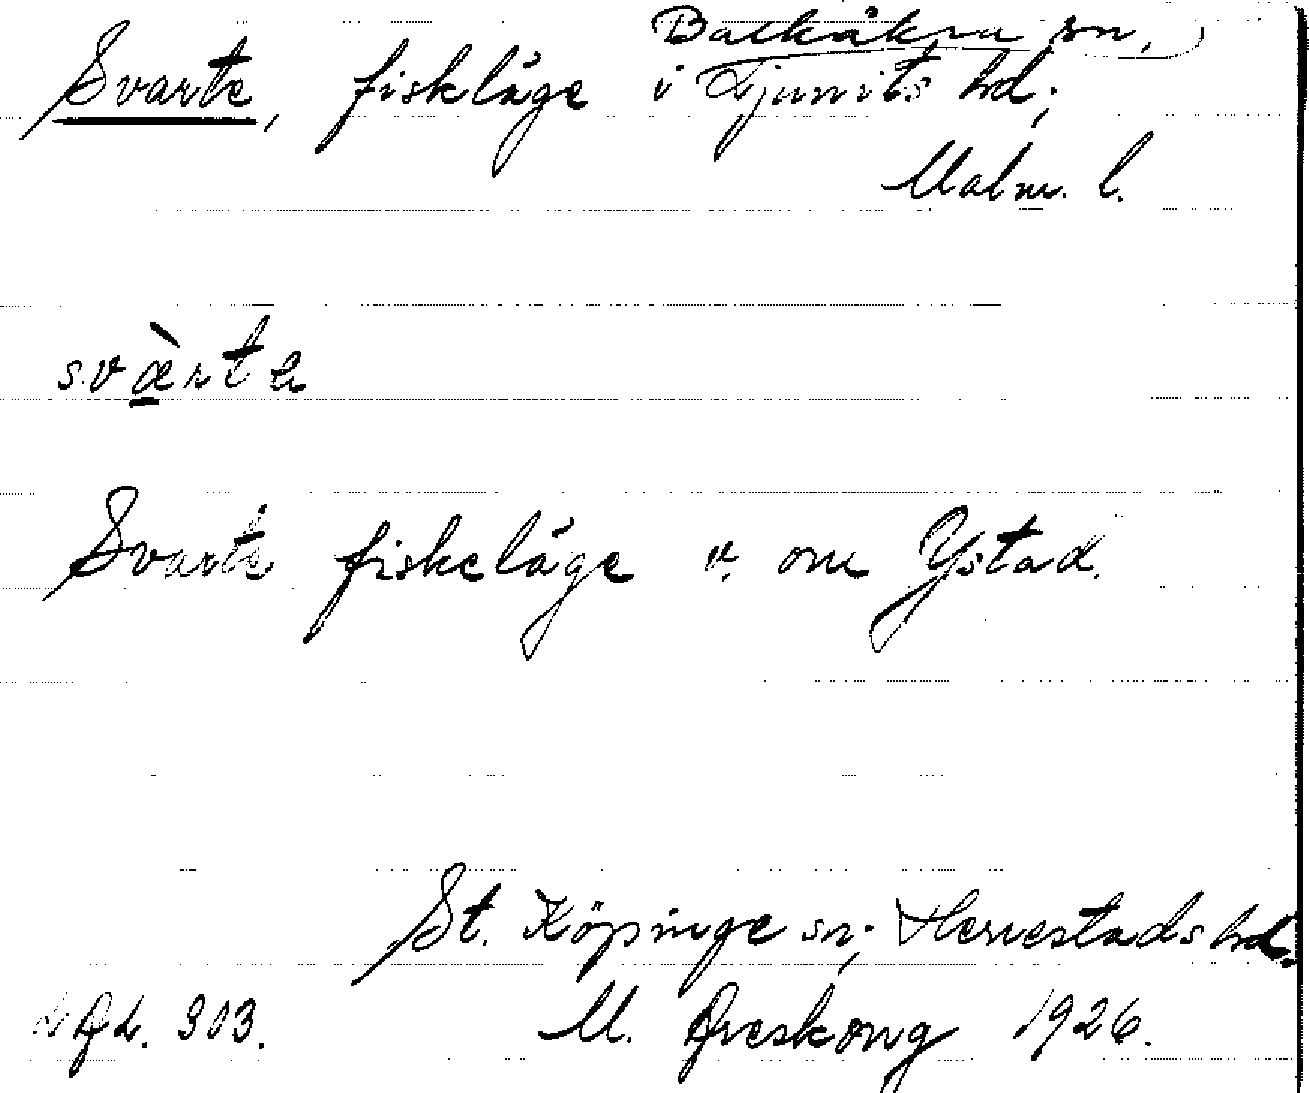 Balkåkra sn,
Svarte, fiskläge i Ljunits hd;
Malm. l.
svæ̀rte
Svarte fiskeläge v. om Ystad.
St. Köpinge sn; Herrestads hd.
303. M. Areskoug 1926.